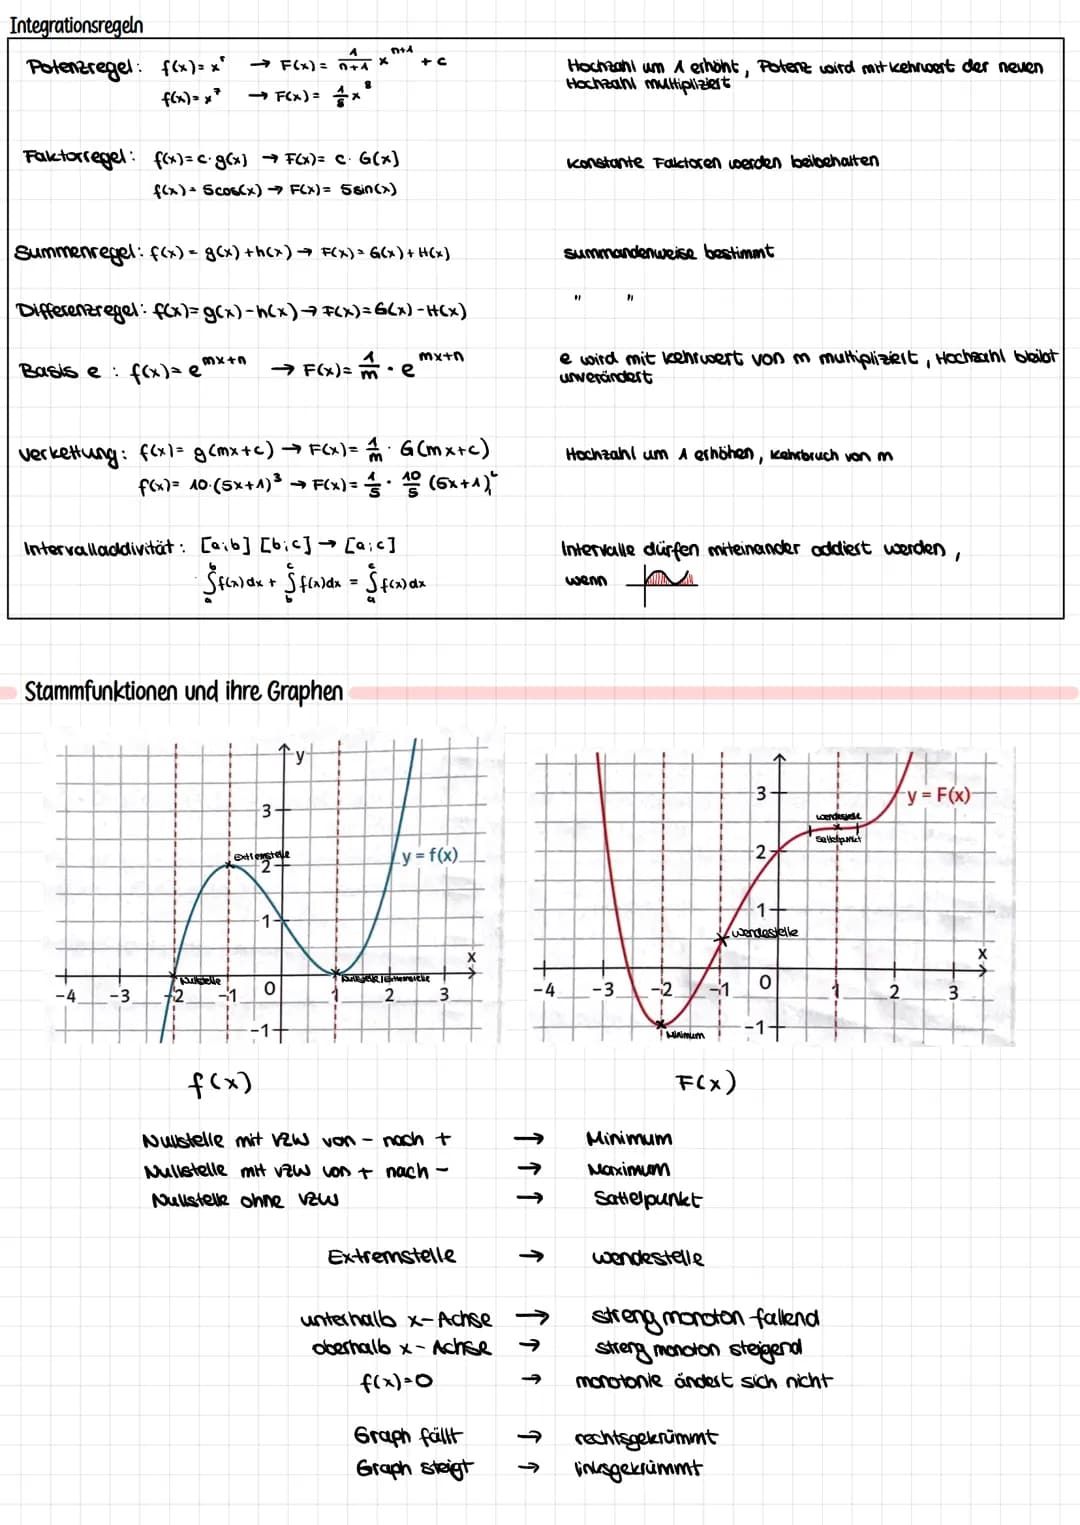 Integrationsregeln
Potenzregel: f(x)= xʳ → F(x) = 1/n+1 x^n+1 + c
Hochzahl um 1 erhöht, Potenz wird mit kehrwert der neuen
Hochzahl multipliziert
f(x)= x⁷ → F(x) = 1/8 x⁸
Faktorregel: f(x)=c·g(x) → F(x)= c·G(x)
konstante Faktoren werden beibehalten
f(x)= 5cos(x) → F(x)= 5sin(x)
Summenregel: f(x) = g(x) +h(x) → F(x) = G(x) + H(x)
summandenweise bestimmt
Differenzregel: f(x)= g(x)-h(x) → F(x)=G(x)-H(x)
" "
Basis e : f(x)= e^mx+n → F(x)= 1/m · e^mx+n
e wird mit kehrwert von m multipliziert, Hochzahl bleibt
unverändert
Verkettung: f(x)= g(mx+c) → F(x)= 1/m · G(mx+c)
Hochzahl um 1 erhöhen, kehrbruch von m
f(x)= 10·(5x+1)³ → F(x)= 1/5 · 10/5 (5x+1)
Intervalladdivität: [a;b] [b;c] → [a;c]
Intervalle dürfen miteinander addiert werden,
∫ₐᵇ f(x)dx + ∫_b^c f(x)dx = ∫ₐ^c f(x)dx
wenn
Stammfunktionen und ihre Graphen
y
3
Extremstelle
2
y = f(x)
1
x
Nullstelle
Nullstelle/Extremstelle
-4 -3 -2 -1 0 1 2 3
-1
3
y = F(x)
Wendestelle
Sattelpunkt
2
1
Wendestelle
x
-4 -3 -2 -1 0 1 2 3
-1
Minimum
f(x)
F(x)
Nullstelle mit VZW von - nach + → Minimum
Nullstelle mit VZW von + nach - → Maximum
Nullstelle ohne VZW → Sattelpunkt
Extremstelle → Wendestelle
unterhalb x-Achse → streng monoton fallend
oberhalb x-Achse → streng monoton steigend
f(x)=0 → monotonie ändert sich nicht
Graph fällt → rechtsgekrümmt
Graph steigt → linksgekrümmt